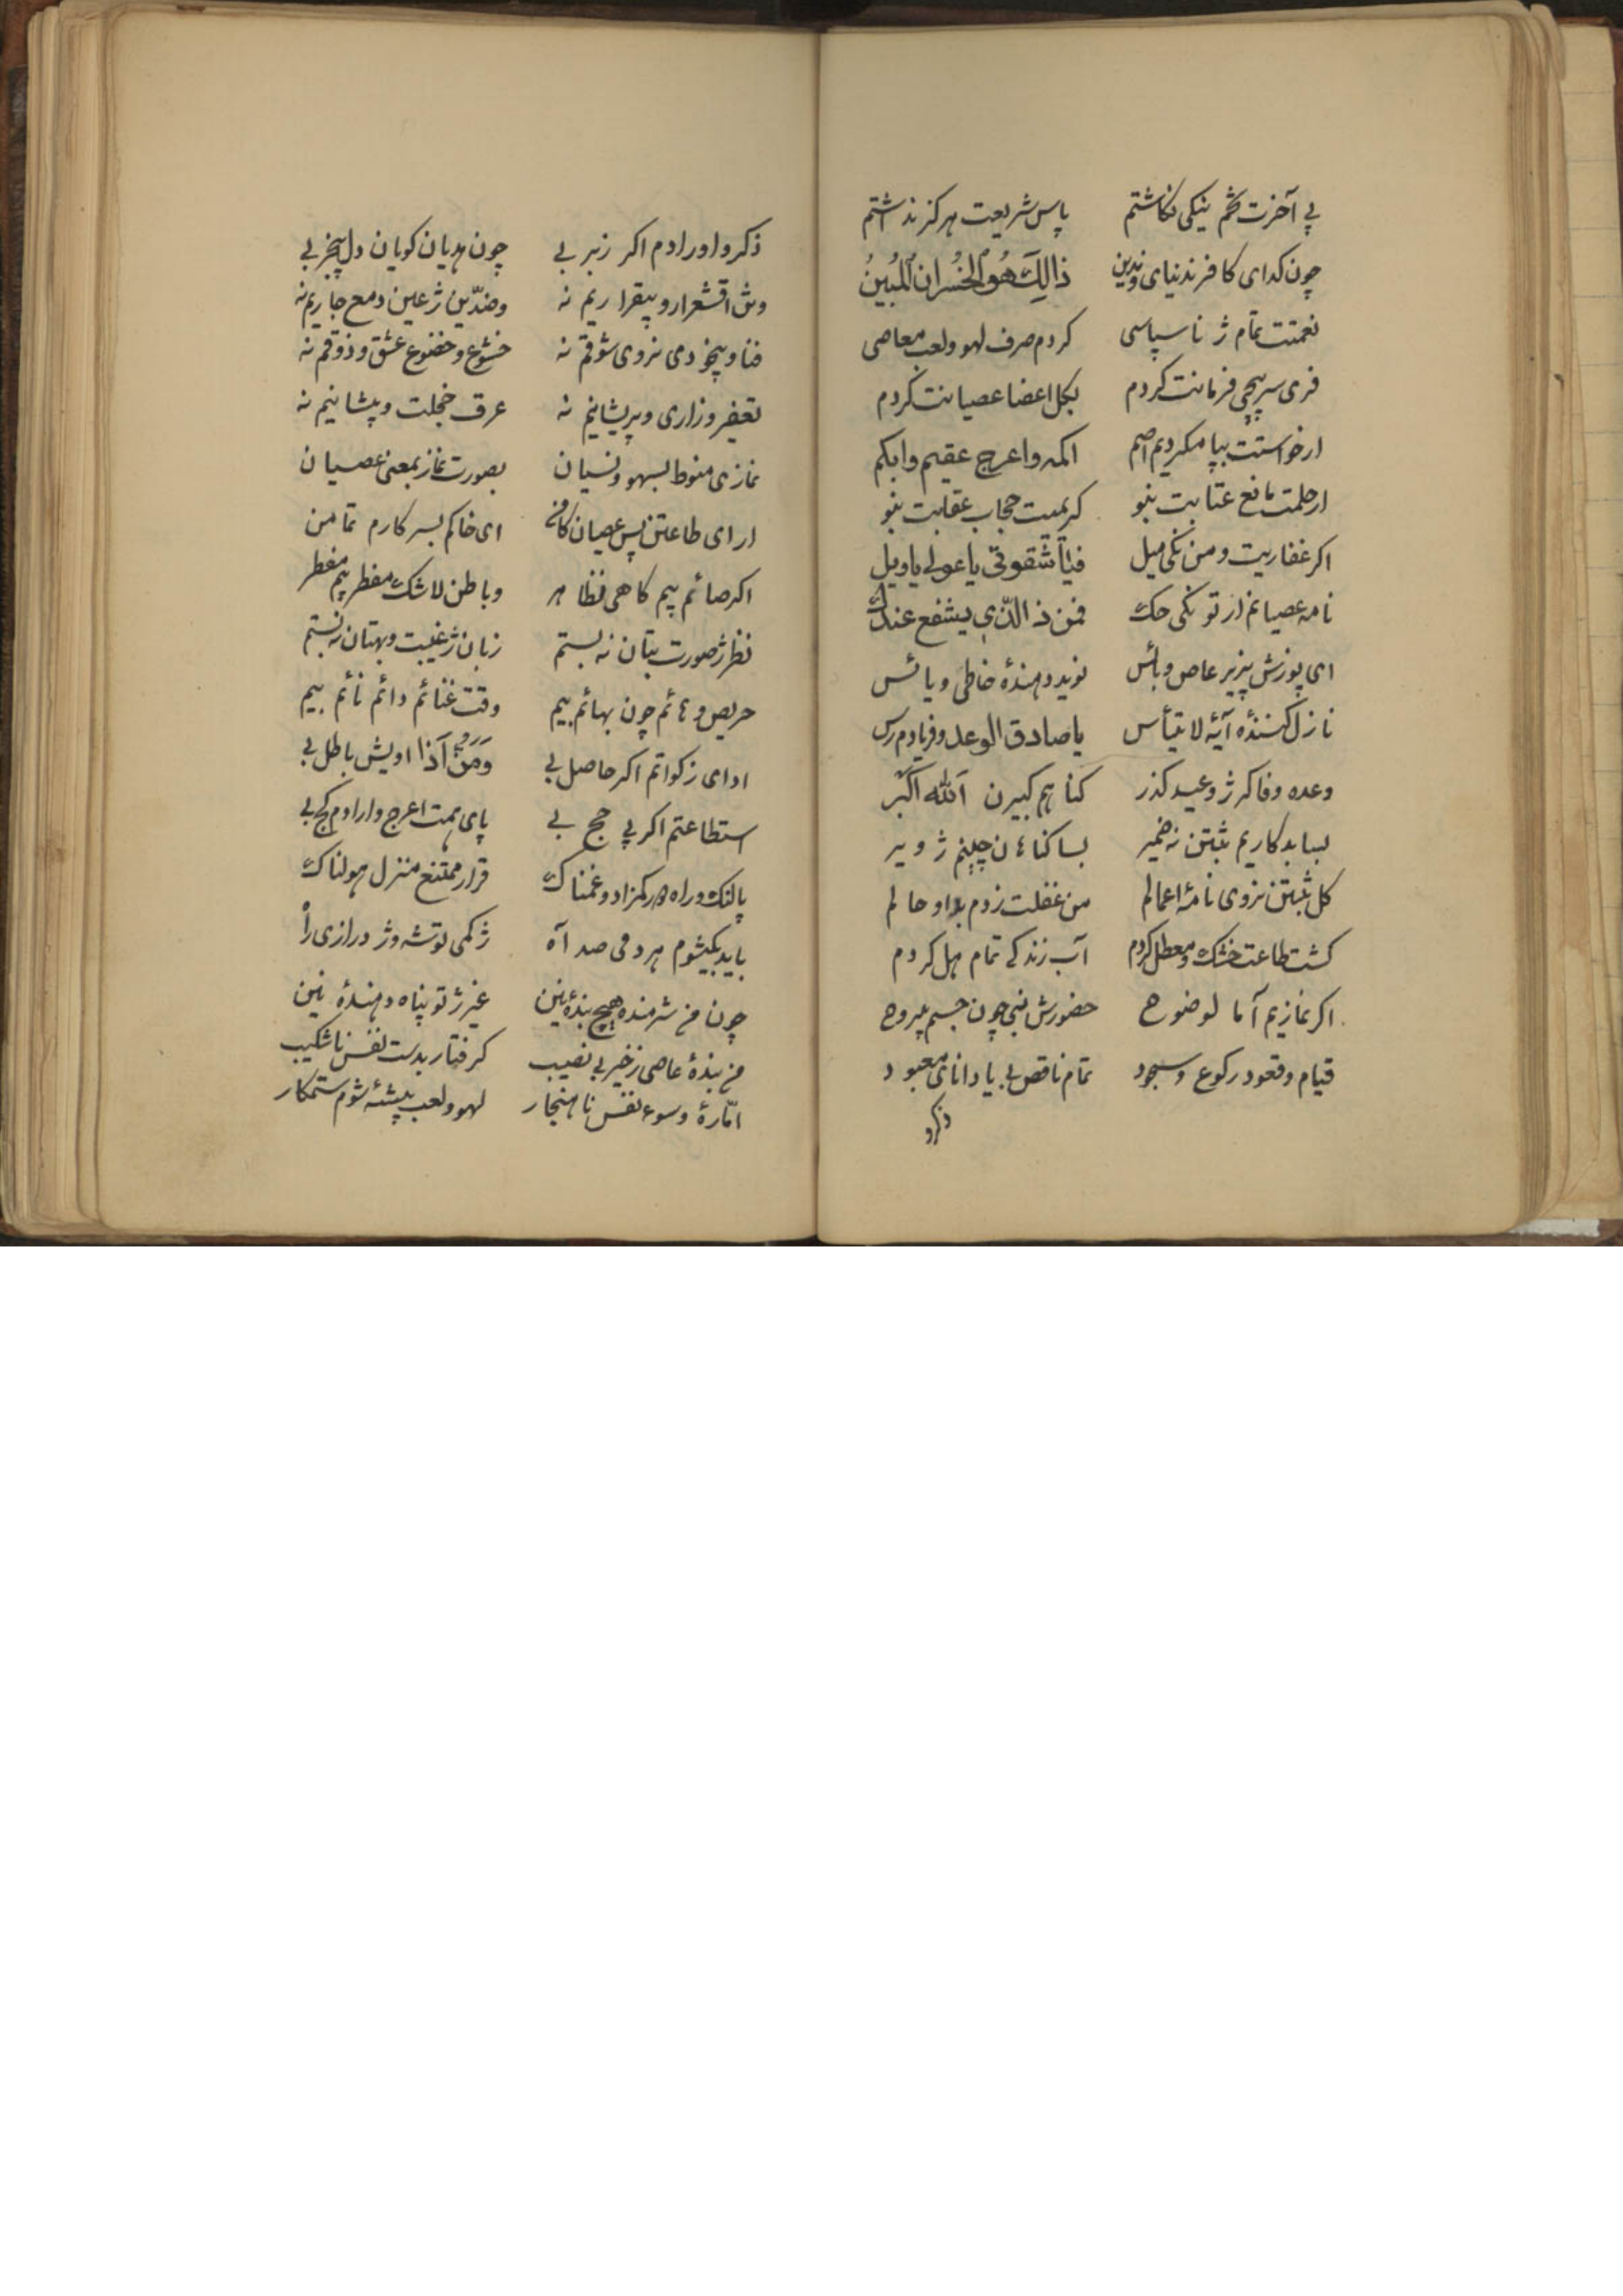 پی آخرت تخم نیکی نکاشتم پاس شریعت هرکز نداشتم
چون کدای کافر نه دنیای و نه دین ذالِکَ هُوَ الخُسران المُبینُ
نعمتت تمام ژ ناسپاسی کردم صرف لهو ولعب معاصی
فری سرپیچی فرمانت کردم بکل اعضا عصیانت کردم
ارخواستت بپا مکردیم اصم اکمه واعرج عقیم وابکم
ارحلمت مانع عتابت بنو کریمیت حجاب عقابت بنو
اکر غفاریت ومن نکی میل فیا شقوتی یا عولی یاویل
نامه عصیانم ار تو نکی حک فمن ذ الذّی یشفع عندک
ای پوزش پزیر عاص وبائس نوید دهندهٔ خاطی ویائس
نازل کنندهٔ آیهٔ لا تیأس یا صادق الوعد وفریادم رس
وعده وفاکر ژ وعید کذر کناهم کبیرن اَللّه اکبر
بسا بدکاریم ثبتن نه ضمیر بسا کناءن چینم ژ ویر
کل ثبتن نروی نامهٔ اعمالم من غفلت زدم بداو حالم
کشت طاعت خشک ومعطل کردم آب زندکی تمام هل کردم
اکر نمازیم آما لوضوح حضورش نبی چون جسم بیروح
قیام وقعود رکوع وسجود تمام ناقص بی یا دانای معبود
ذکرو
ذکر واورادم اکر زبر بی چون هدیان کویان دل بیخبر بی
وش اقشعرار و بیقراریم نه وضدّین ژ عین دمع جاریم نه
فنا وبیخودی نروی شوقم نه خشوع و خضوع عشق وذوقم نه
تعفیر وزاری وپریشانیم نه عرق خجلت وپیشانیم نه
نمازی منوط بسهو ونسیان بصورت نماز بمعنی عصیان
ار ای طاعتن پس عصیان کامن ای خاکم بسر کارم تمامن
اکر صائم بیم کاهی فظاهر وباطن لاشک مفطر بیم مفطر
نظر ژ صورت بتان نه بستم زبان ژ غیبت وبهتان نه بستم
حریص وهائم چون بهائم بیم وقت غنائم دائم نائم بیم
ادای زکواتم اکر حاصل بی وَمَنْ اَذا اویش باطل بی
استطاعتم اکر پی حج بی پای همت اعرج وارادم کج بی
پا لنک وراه دور کمزاد وغمناک قرار ممتنع منزل هولناک
باید بکیشوم هردمی صد آه ژ کمی توشه وژ درازی راْ
چون من شرمنده هیچ بندهٔ نین غیر ژ تو پناه دهندهٔ نین
من بندهٔ عاصی ز خیر بی نصیب کرفتار بدست نفس ناشکیب
امّارهٔ وسوء نفس ناهنجار لهو ولعب پیشهٔ شوم ستمکار